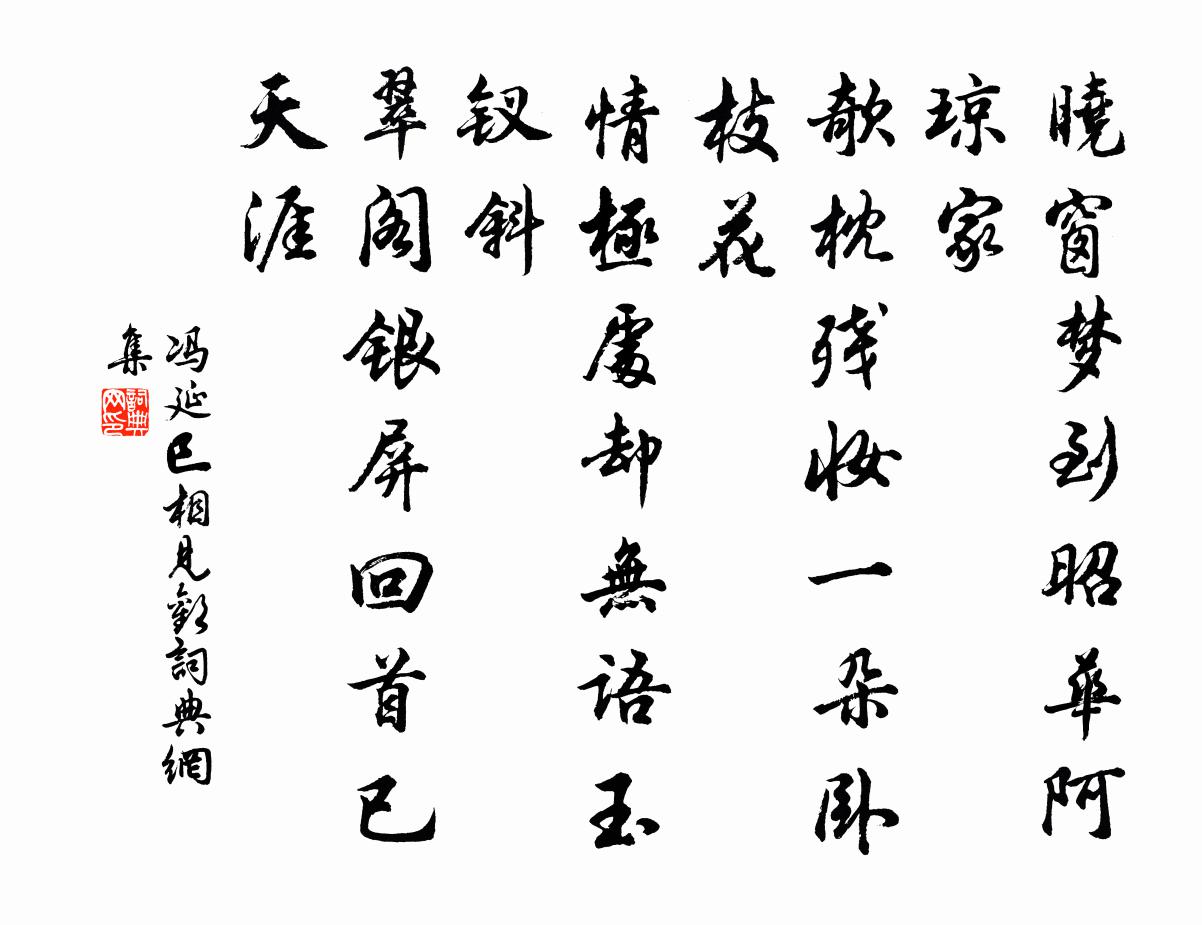 曉窗梦到昭華阿
琼家
欹枕残妆一朵卧
枝花
情極處却無語玉
钗斜
翠阁银屏回首已
天涯
冯延巳相見歡詞典網
集
詞典网印